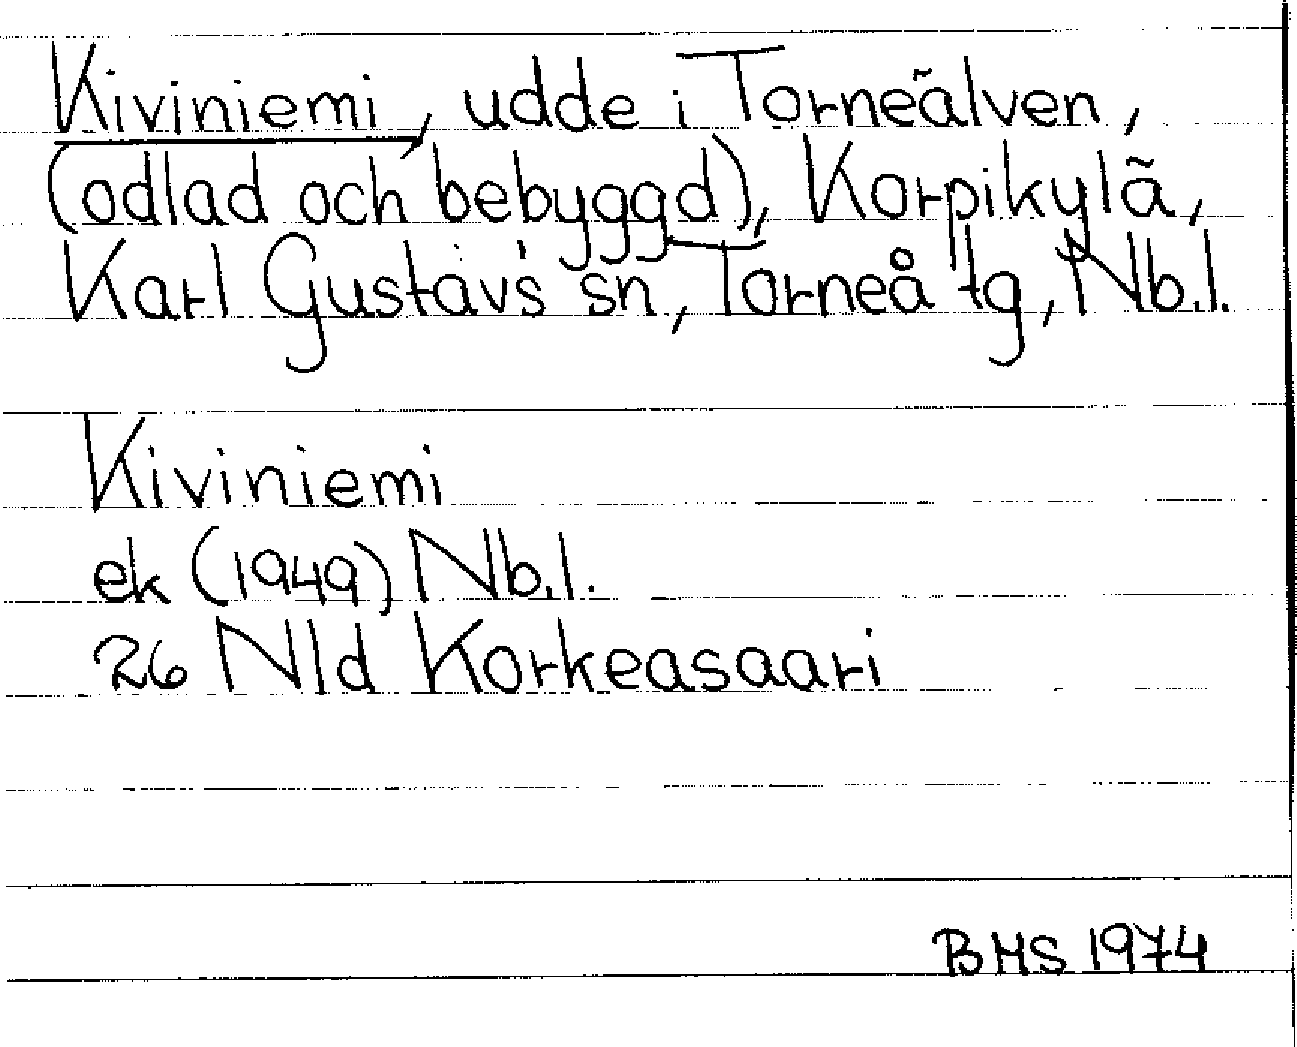 Kiviniemi, udde i Torneälven,
(odlad och bebyggd), Korpikylä,
Karl Gustavs sn, Torneå tg, Nb.l.
Kiviniemi
ek (1949) Nb.l.
26 Nld Korkeasaari
BHS 1974